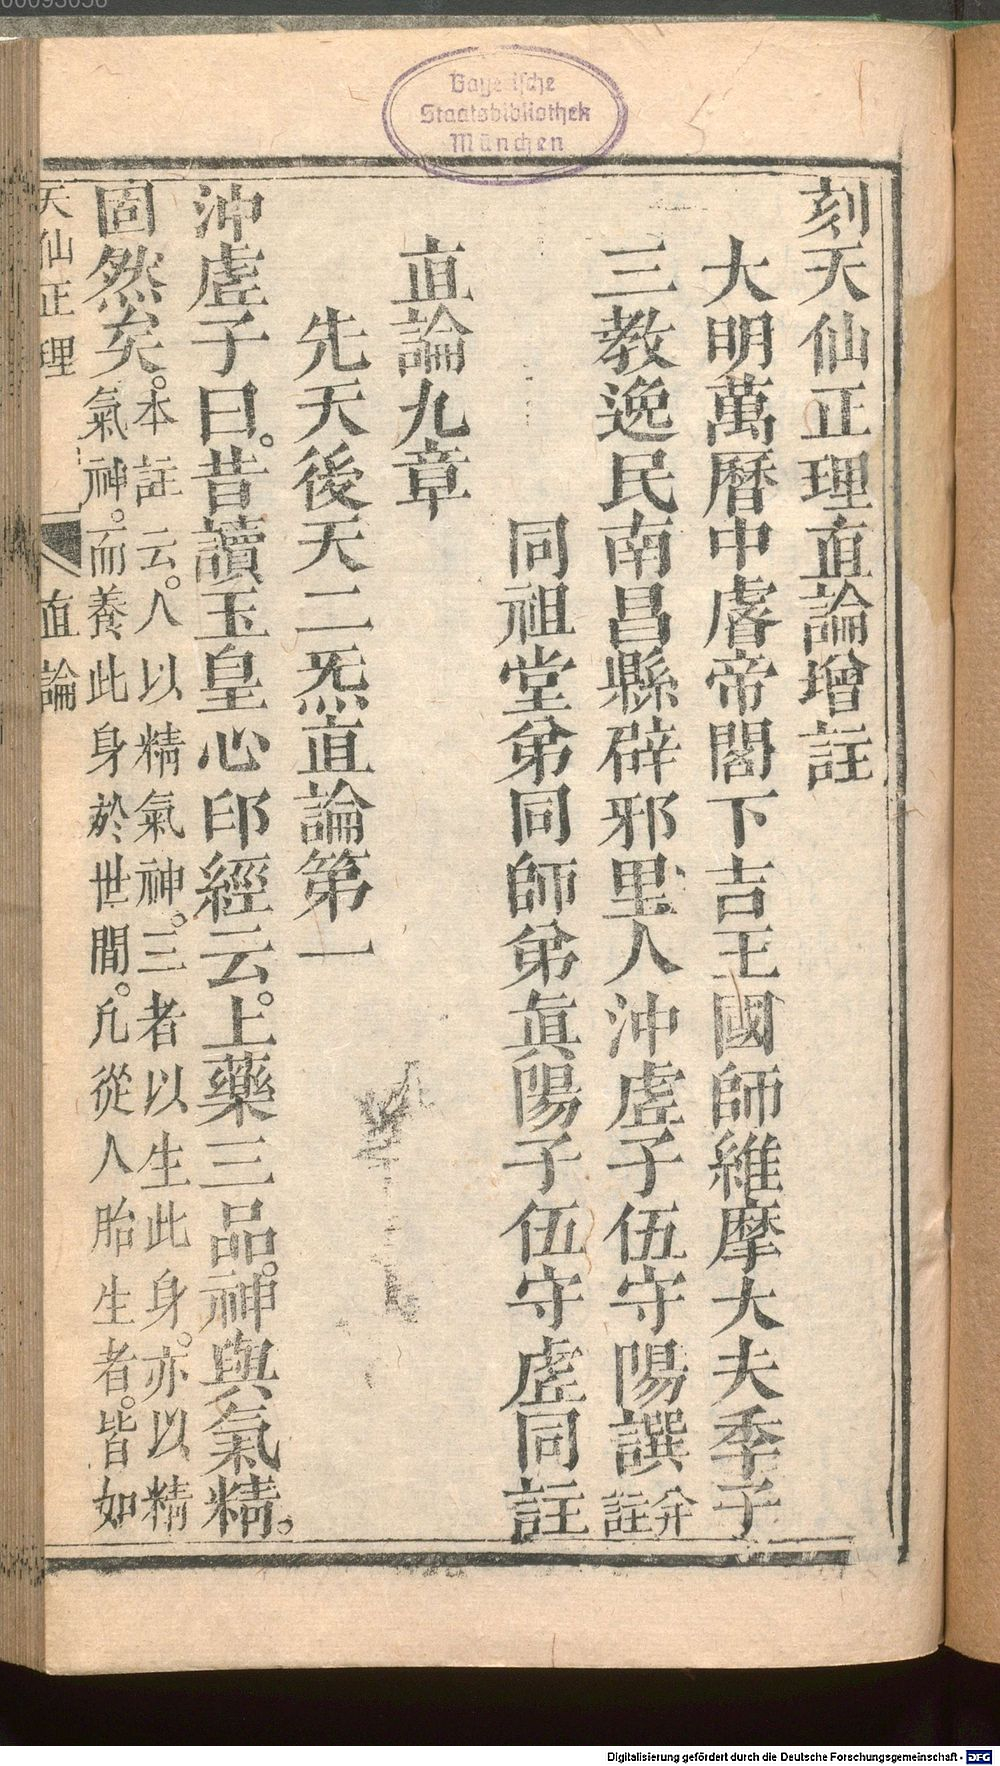 00093056
Bayerische
Staatsbibliothek
München
刻天仙正理直論增註
大明萬曆中睿帝閣下吉王國師維摩大夫季子
三教逸民南昌縣辟邪里人沖虛子伍守陽譔幷註
同祖堂弟同師弟眞陽子伍守虛同註
直論九章
先天後天二炁直論第一
沖虛子曰。昔讀玉皇心印經云。上藥三品。神與氣精。
固然矣。本註云。人以精氣神。三者以生此身。亦以精
氣神。而養此身於世間。凡從人胎生者。皆如
天仙正理 直論
Digitalisierung gefördert durch die Deutsche Forschungsgemeinschaft - DFG